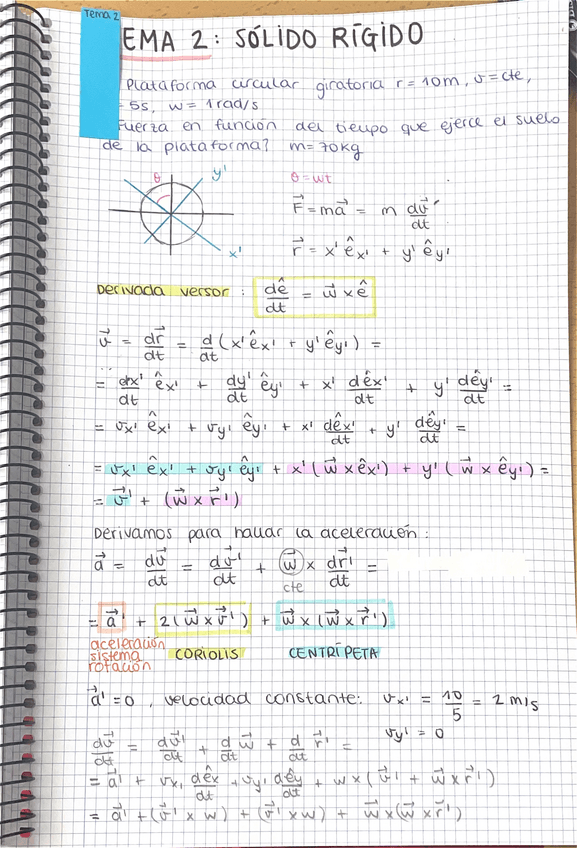 Tema 2
EMA 2: SÓLIDO RÍGIDO
Plataforma circular giratoria r = 10m, v = cte,
= 5s, w = 1 rad/s
Fuerza en función del tiempo que ejerce el suelo
de la plataforma? m = 70kg
θ y' θ = wt
F⃗ = ma⃗ = m dv⃗/dt
x' r⃗ = x' êx' + y' êy'
Derivada versor : dê/dt = w⃗ x ê
v⃗ = dr⃗/dt = d/dt (x' êx' + y' êy') =
= dx'/dt êx' + dy'/dt êy' + x' dêx'/dt + y' dêy'/dt =
= vx' êx' + vy' êy' + x' dêx'/dt + y' dêy'/dt =
= vx' êx' + vy' êy' + x' (w⃗ x êx') + y' (w⃗ x êy') =
= v⃗' + (w⃗ x r⃗')
Derivamos para hallar la aceleración :
a⃗ = dv⃗/dt = dv⃗'/dt + w⃗ x dr⃗'/dt =
cte
= a⃗' + 2(w⃗ x v⃗') + w⃗ x (w⃗ x r⃗')
aceleración
sistema CORIOLIS CENTRÍPETA
rotación
a⃗' = 0 , velocidad constante: vx' = 10/5 = 2 m/s
vy' = 0
dv⃗/dt = dv⃗'/dt + d/dt w⃗ + d/dt r⃗' =
= a⃗' + vx, dêx/dt + vy' dêy/dt + w x (v⃗' + w⃗ x r⃗')
= a⃗' + (v⃗' x w) + (v⃗' x w) + w⃗ x (w⃗ x r⃗')